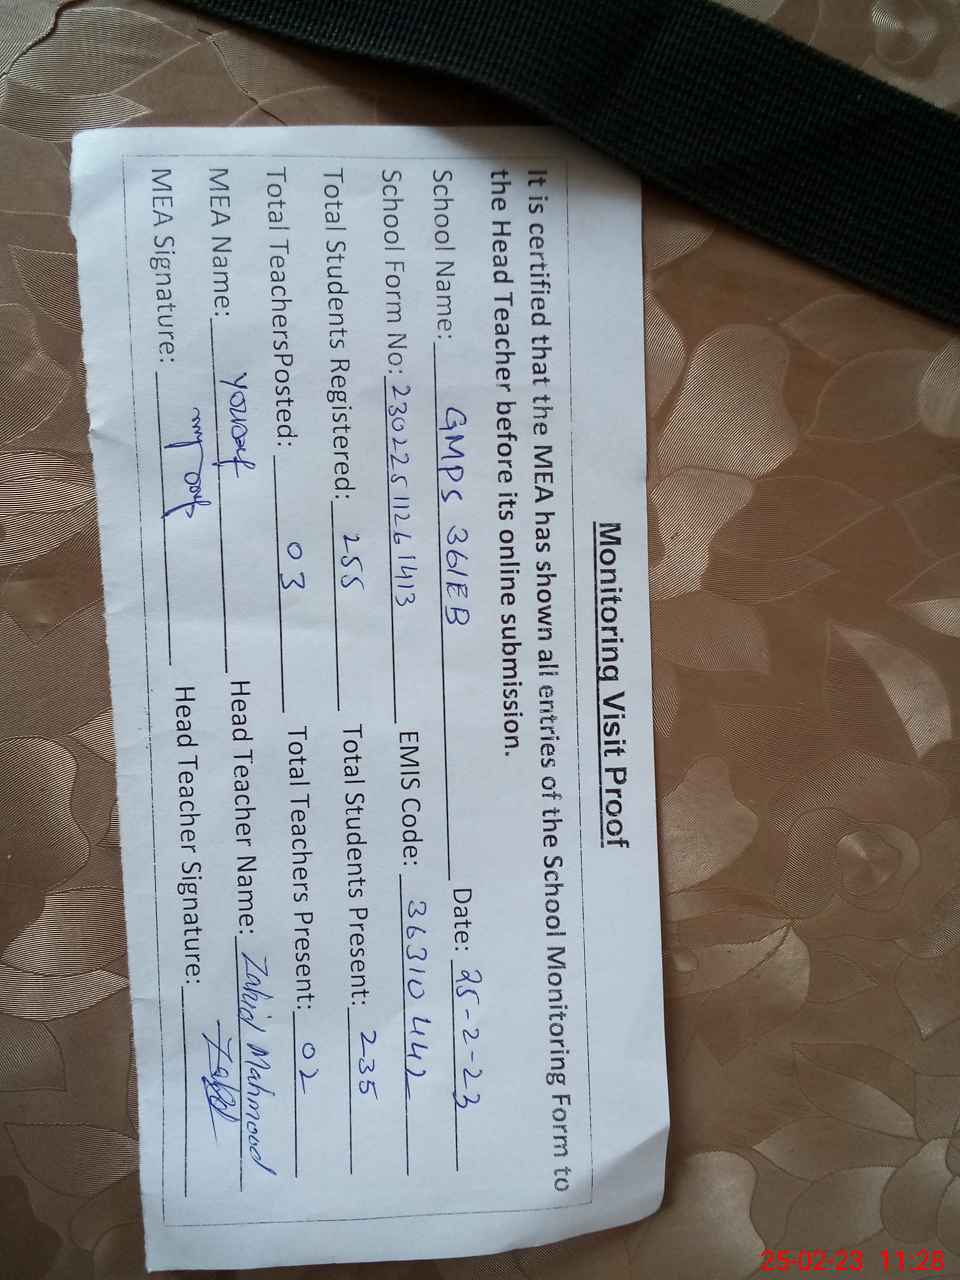 Monitoring Visit Proof
It is certified that the MEA has shown all entries of the School Monitoring Form to
the Head Teacher before its online submission.
School Name: GMPS 361EB Date: 25-2-23
School Form No: 23022511261413 EMIS Code: 36310442
Total Students Registered: 255 Total Students Present: 235
Total TeachersPosted: 03 Total Teachers Present: 02
MEA Name: yousaf Head Teacher Name: Zahid Mahmood
MEA Signature: Head Teacher Signature: Zahid
25-02-23 11:28